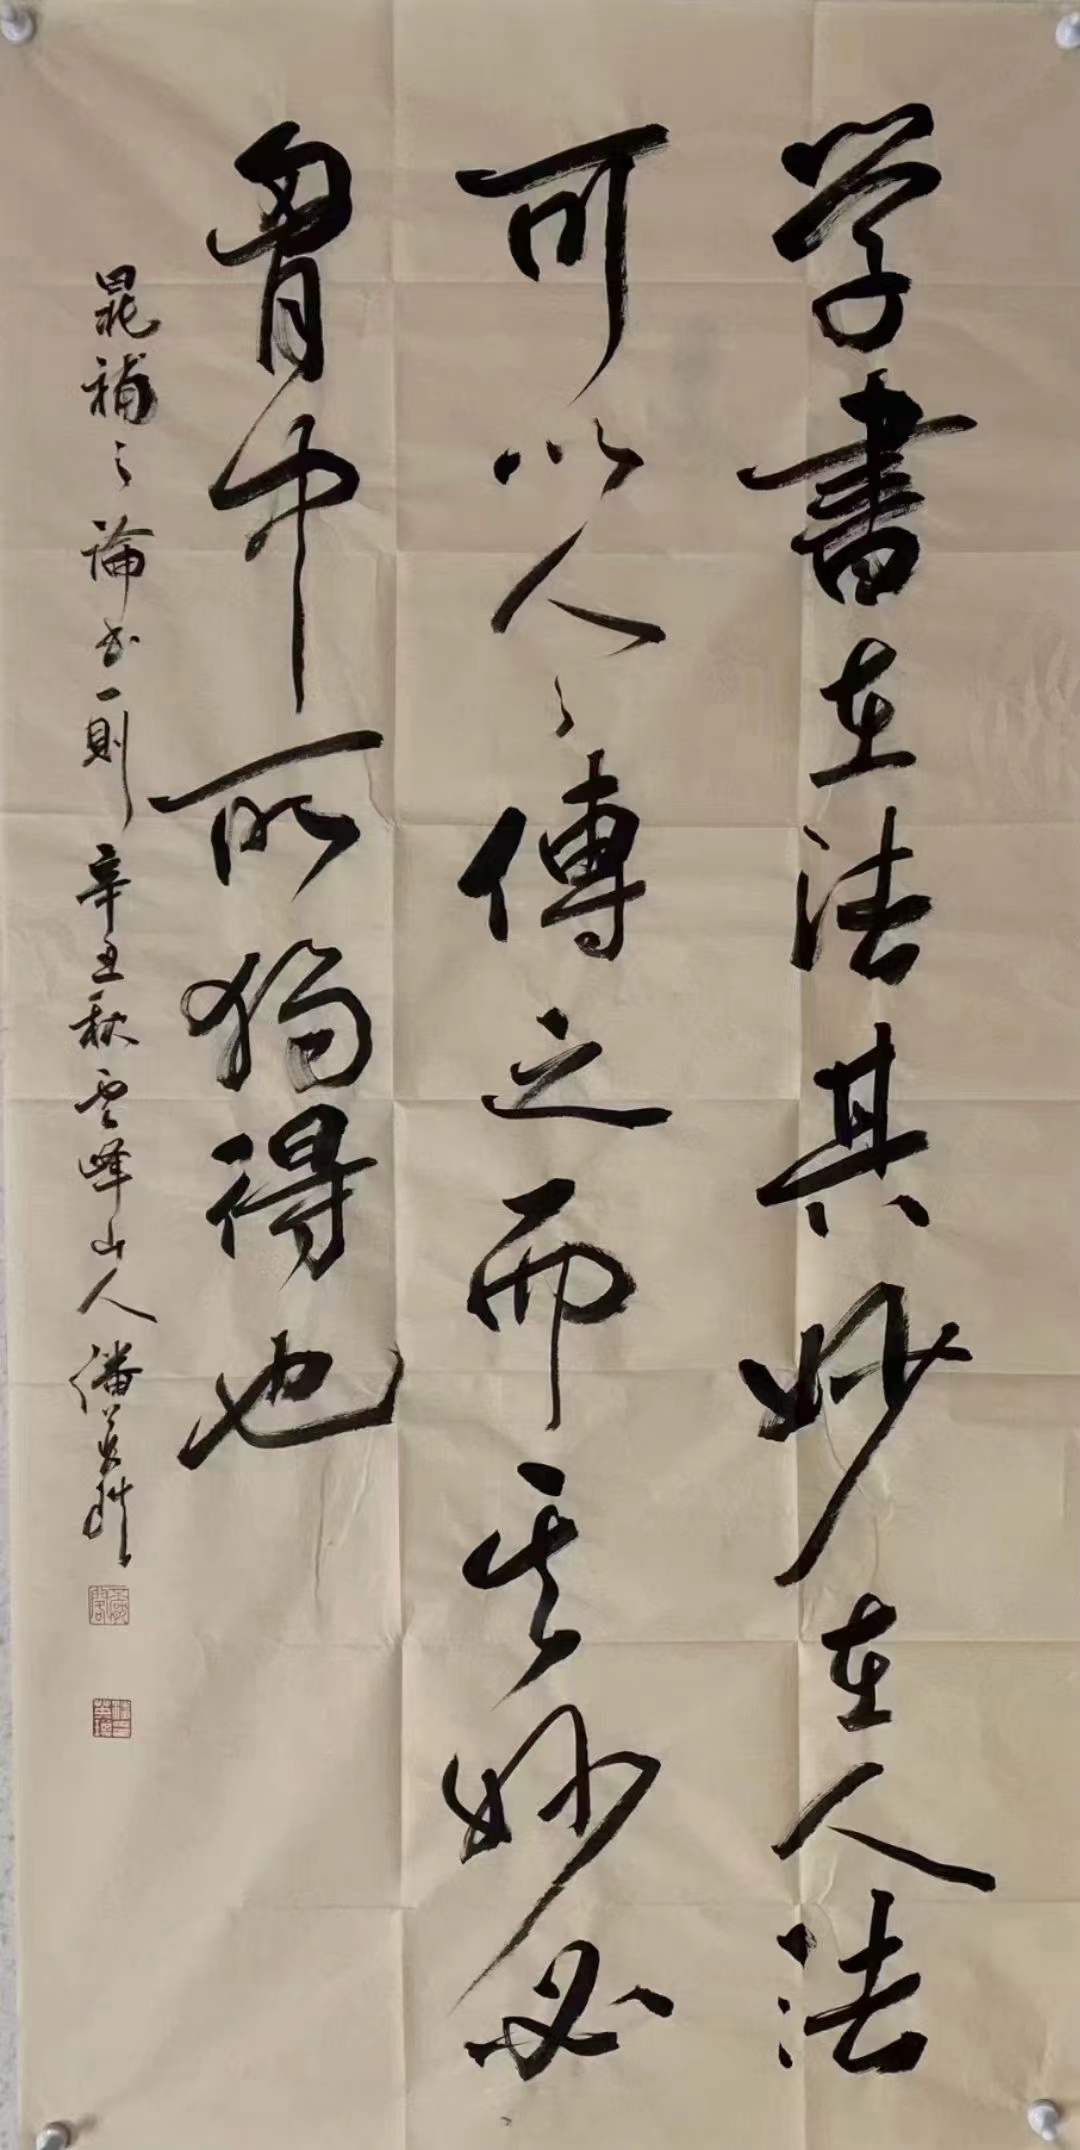 学書在法其妙在人法
可以人〻傳之而其妙必
胷中所独得也
晁補之論书一則 辛丑秋雲峰山人潘英